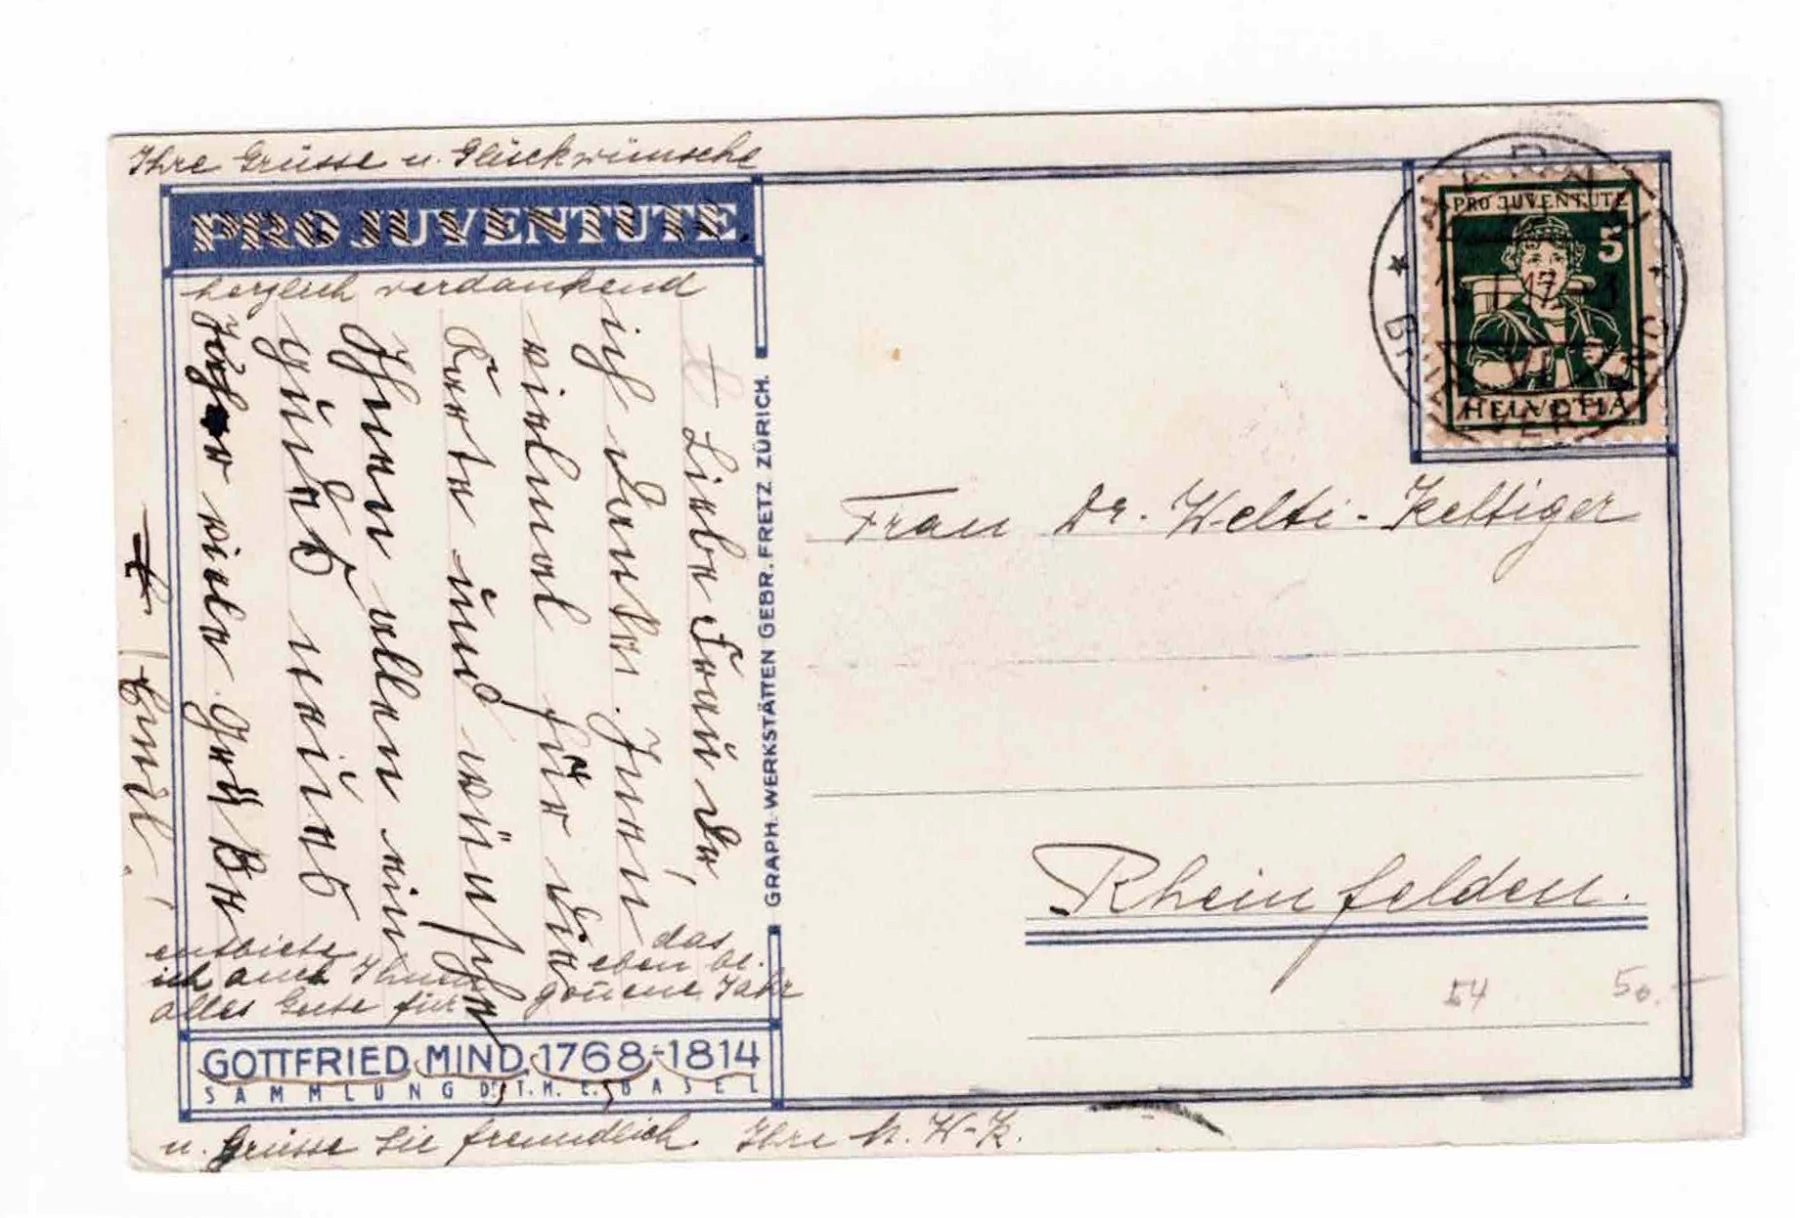 Ihre Grüsse u. Glückwünsche
PRO JUVENTUTE
herzlich verdankend
Liebe Frau Dr,
ich danke Ihnen
vielmal für die
Karte und wünsche
Ihnen allen ein
gutes neues
Jahr viele Grüße
Emil
entbiete
ich auch Ihnen
alles Gute für
das
eben be-
gonnene Jahr
GOTTFRIED MIND 1768-1814
SAMMLUNG BASEL
u. Grüsse Sie freundlich. Ihre M. W-K.
GRAPH. WERKSTÄTTEN GEBR. FRETZ ZÜRICH.
PRO JUVENTUTE
5
HELVETIA
Frau Dr. Welti-Kettiger
Rheinfelden.
54
50.-